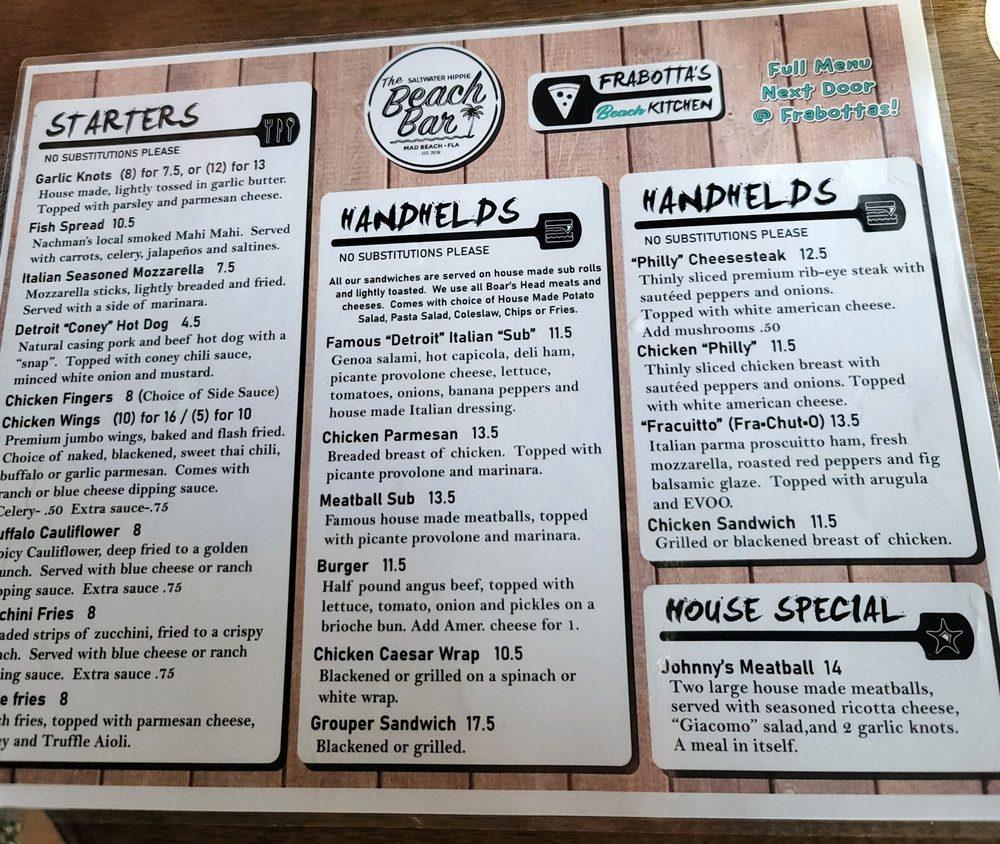 The SALTWATER HIPPIE
Beach
Bar
MAD BEACH • FLA
EST. 2018
FRABOTTA'S
Beach KITCHEN
Full Menu
Next Door
@ Frabottas!
STARTERS
NO SUBSTITUTIONS PLEASE
Garlic Knots (8) for 7.5, or (12) for 13
House made, lightly tossed in garlic butter.
Topped with parsley and parmesan cheese.
Fish Spread 10.5
Nachman's local smoked Mahi Mahi. Served
with carrots, celery, jalapeños and saltines.
Italian Seasoned Mozzarella 7.5
Mozzarella sticks, lightly breaded and fried.
Served with a side of marinara.
Detroit "Coney" Hot Dog 4.5
Natural casing pork and beef hot dog with a
"snap". Topped with coney chili sauce,
minced white onion and mustard.
Chicken Fingers 8 (Choice of Side Sauce)
Chicken Wings (10) for 16 / (5) for 10
Premium jumbo wings, baked and flash fried.
Choice of naked, blackened, sweet thai chili,
buffalo or garlic parmesan. Comes with
ranch or blue cheese dipping sauce.
Celery- .50 Extra sauce-.75
uffalo Cauliflower 8
picy Cauliflower, deep fried to a golden
unch. Served with blue cheese or ranch
pping sauce. Extra sauce .75
chini Fries 8
aded strips of zucchini, fried to a crispy
nch. Served with blue cheese or ranch
ing sauce. Extra sauce .75
e fries 8
ch fries, topped with parmesan cheese,
ey and Truffle Aioli.
HANDHELDS
NO SUBSTITUTIONS PLEASE
All our sandwiches are served on house made sub rolls
and lightly toasted. We use all Boar's Head meats and
cheeses. Comes with choice of House Made Potato
Salad, Pasta Salad, Coleslaw, Chips or Fries.
Famous "Detroit" Italian "Sub" 11.5
Genoa salami, hot capicola, deli ham,
picante provolone cheese, lettuce,
tomatoes, onions, banana peppers and
house made Italian dressing.
Chicken Parmesan 13.5
Breaded breast of chicken. Topped with
picante provolone and marinara.
Meatball Sub 13.5
Famous house made meatballs, topped
with picante provolone and marinara.
Burger 11.5
Half pound angus beef, topped with
lettuce, tomato, onion and pickles on a
brioche bun. Add Amer. cheese for 1.
Chicken Caesar Wrap 10.5
Blackened or grilled on a spinach or
white wrap.
Grouper Sandwich 17.5
Blackened or grilled.
HANDHELDS
NO SUBSTITUTIONS PLEASE
"Philly" Cheesesteak 12.5
Thinly sliced premium rib-eye steak with
sautéed peppers and onions.
Topped with white american cheese.
Add mushrooms .50
Chicken "Philly" 11.5
Thinly sliced chicken breast with
sautéed peppers and onions. Topped
with white american cheese.
"Fracuitto" (Fra-Chut-O) 13.5
Italian parma proscuitto ham, fresh
mozzarella, roasted red peppers and fig
balsamic glaze. Topped with arugula
and EVOO.
Chicken Sandwich 11.5
Grilled or blackened breast of chicken.
HOUSE SPECIAL
Johnny's Meatball 14
Two large house made meatballs,
served with seasoned ricotta cheese,
"Giacomo" salad,and 2 garlic knots.
A meal in itself.